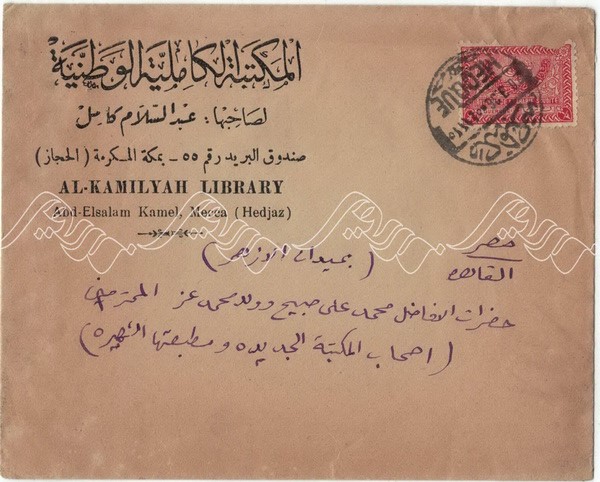 المكتبة الكاملية الوطنية
لصاحبها: عبد السلام كامل
صندوق البريد رقم ٥٥ - بمكة المكرمة (الحجاز)
AL-KAMILYAH LIBRARY
Abd-Elsalam Kamel, Mecca (Hedjaz)
MECQUE
مصر
القاهره
(بميدان الازهر)
حضرات الافاضل محمد علي صبيح وولده محمد عز المحترمين
(اصحاب المكتبة الجديده ومطبعتها الشهيره)